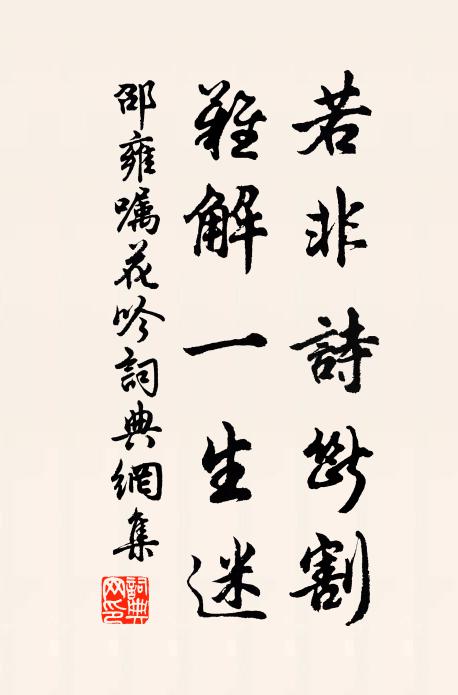 若非詩斷割
難解一生迷
邵雍嘱花吟詞典網集
詞典网印